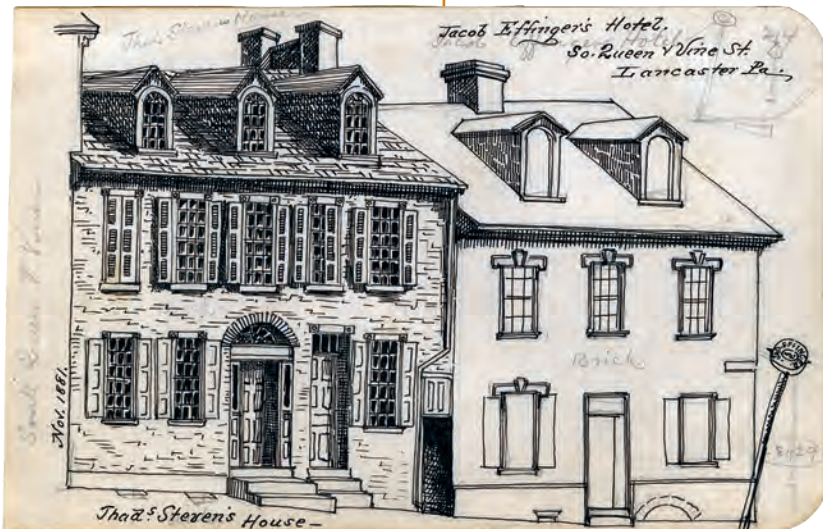 Thad. Stevens House
Jacob Effinger's Hotel.
So. Queen & Vine St.
Lancaster Pa.
South Queen & Vine
Nov. 1881.
Brick
Thad.s Steven's House —